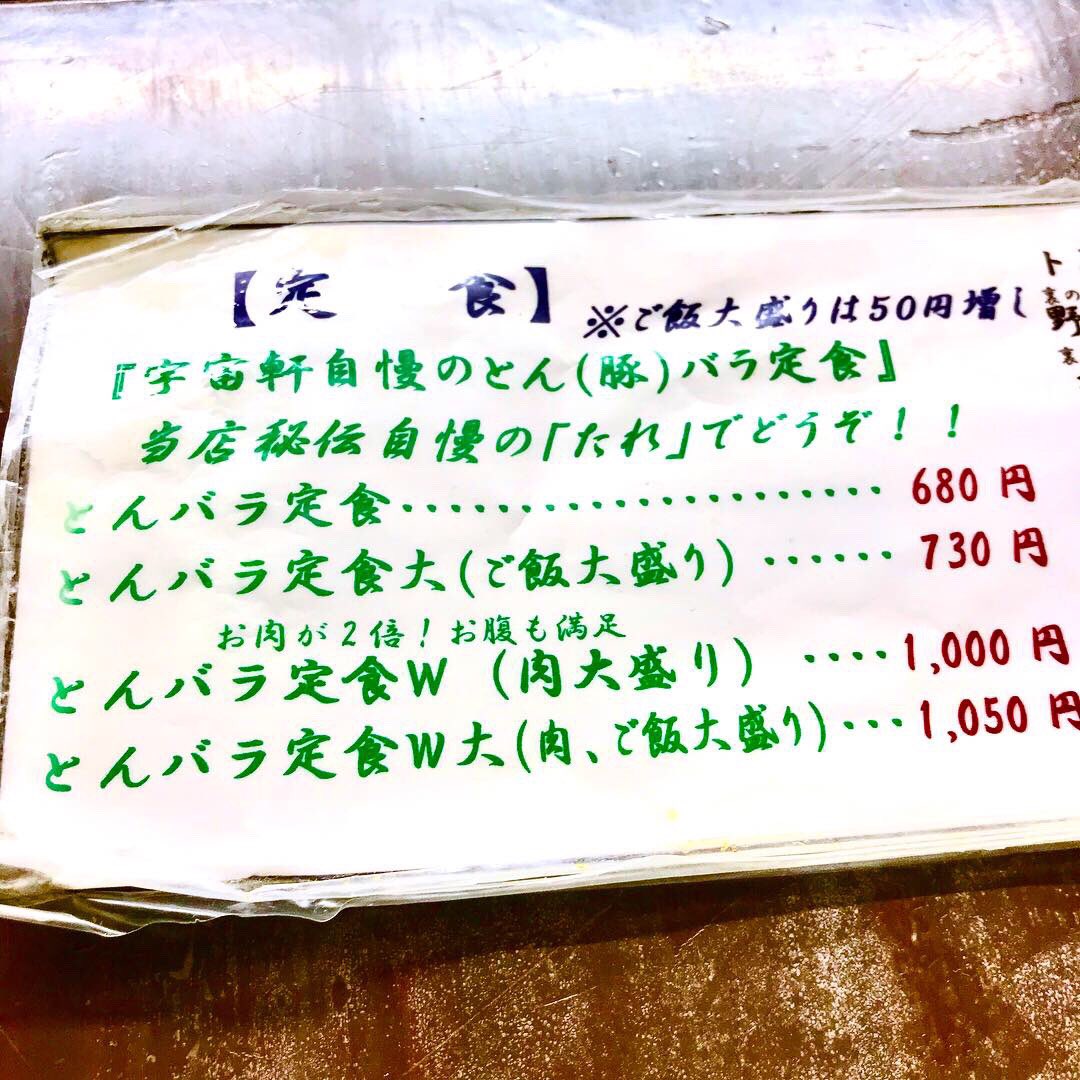 【定 食】 ※ご飯大盛りは50円増し
『宇富軒自慢のとん(豚)バラ定食』
当店秘伝自慢の「たれ」でどうぞ！！
とんバラ定食‥‥‥‥‥‥‥‥‥‥ 680円
とんバラ定食大(ご飯大盛り) ‥‥‥ 730円
お肉が2倍！お腹も満足
とんバラ定食W (肉大盛り) ‥‥1,000円
とんバラ定食W大(肉、ご飯大盛り)…1,050円